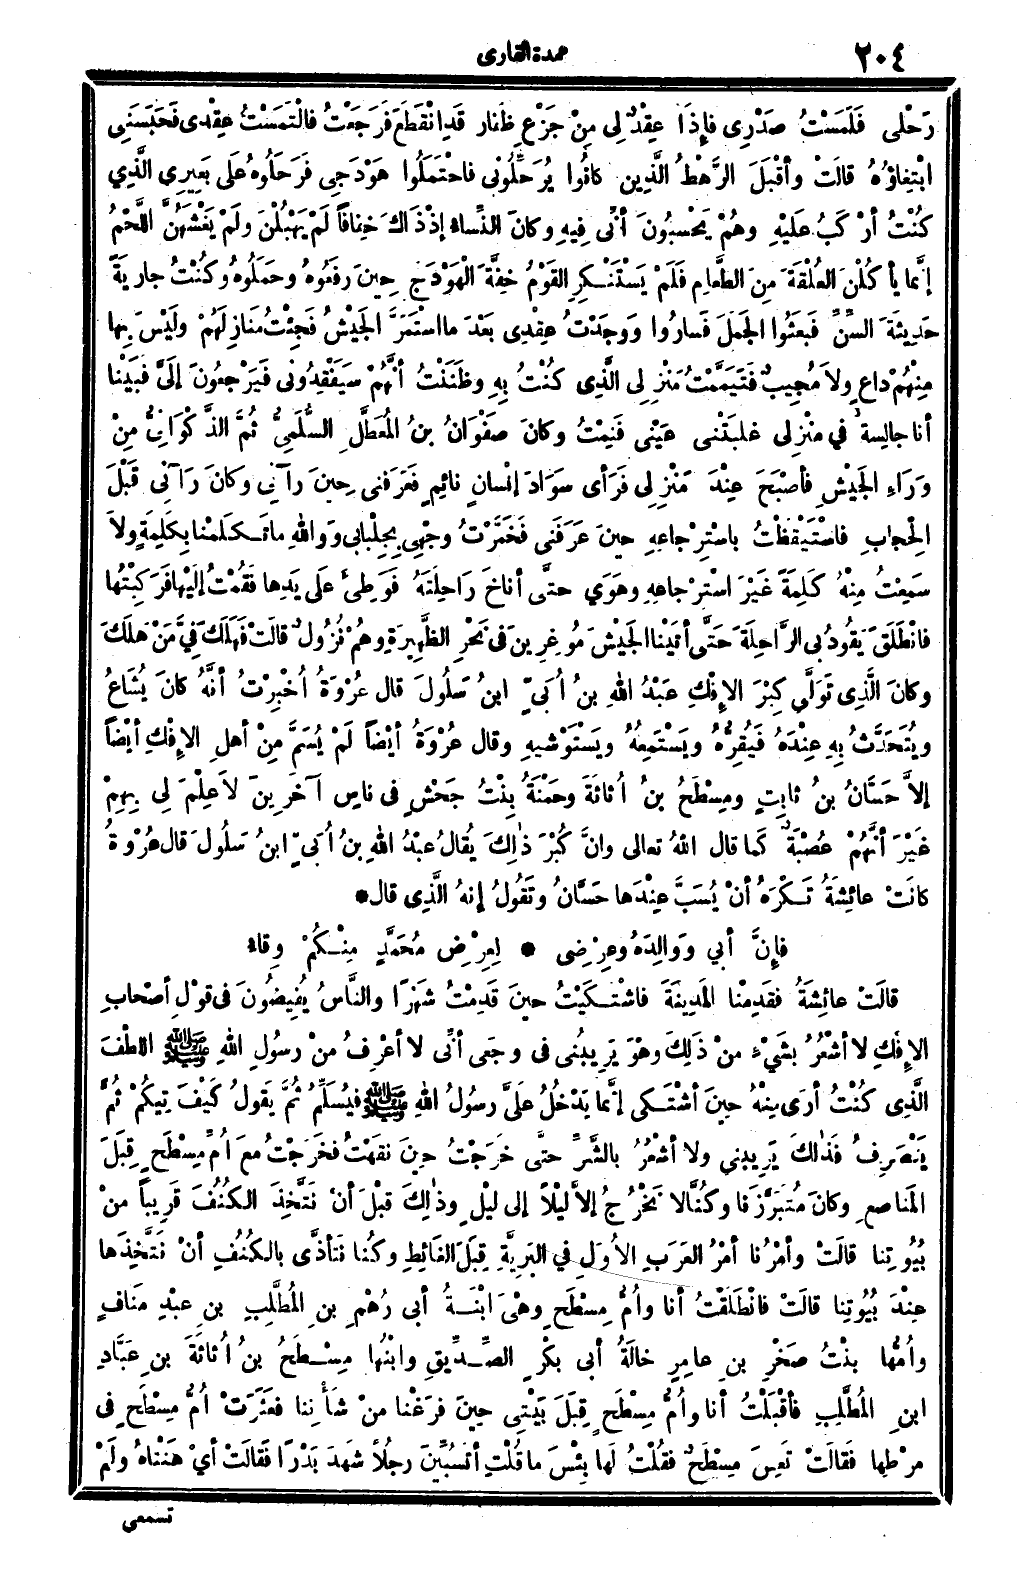 ٢٠٤
عمدة القارى
رَحْلى فَلَمَسْتُ صَدْرِى فإِذَا عِقْدٌ لِى مِنْ جَزْعِ ظَفَارِ قَدِ انْقَطَعَ فَرَجَعْتُ فالْتَمَسْتُ عِقْدِى فَحَبَسَنِى
ابْتِغاؤُهُ قالَتْ وأقْبَلَ الرَّهْطُ الَّذِينَ كانُوا يُرَحِّلُونِى فاحْتَمَلُوا هَوْدَجِى فَرَحَلُوهُ علَى بَعِيرِى الَّذِي
كُنْتُ أرْكَبُ علَيْهِ وهُمْ يَحْسِبُونَ أنِّى فِيهِ وكانَ النِّساءُ إذْ ذَاكَ خِفافاً لَمْ يَهْبُلْنَ ولَمْ يَغْشَهُنَّ اللَّحْمُ
إنَّما يأكُلْنَ العُلْقَةَ مِنَ الطَّعامِ فَلَمْ يَسْتَنْكِرِ القَوْمُ خِفَّةَ الْهَوْدَجِ حِينَ رفَعُوهُ وحَمَلُوهُ وكُنْتُ جارِيَةً
حَدِيثَةَ السِّنِّ فَبَعَثُوا الجَمَلَ فَسارُوا ووَجَدْتُ عِقْدِى بَعْدَ ما اسْتَمَرَّ الجَيْشُ فَجِئْتُ مَنازِلَهُمْ ولَيْسَ بِها
مِنْهُمْ داعٍ ولاَ مُجِيبٌ فَتَيَمَّمْتُ مَنْزِلِى الَّذِى كُنْتُ بِهِ وظَنَنْتُ أنَّهُمْ سَيَفْقِدُونِى فَيَرْجِعُونَ إلَىَّ فَبَيْنا
أنا جالِسةٌ فِي مَنْزِلِى غلبَتْنى عَيْنِى فَنِمْتُ وكانَ صَفْوَانُ بنُ المُعَطَّلِ السُّلَمِىُّ ثُمَّ الذَّكْوَانِىُّ مِنْ
وَرَاءِ الجَيْشِ فأصْبَحَ عِنْدَ مَنْزِلِى فَرَأى سوَادَ إنْسانٍ نائِمٍ فَعَرَفَنِى حِينَ رَآنِى وكانَ رَآنِى قَبْلَ
الحِجابِ فاسْتَيْقَظْتُ باسْتِرْجاعِهِ حِينَ عَرَفَنِى فَخَمَّرْتُ وجْهِى بِجِلْبابِى ووَاللهِ ما تَكَلَّمْنا بِكَلِمَةٍ ولاَ
سَمِعْتُ مِنْهُ كَلِمَةً غَيْرَ اسْتِرْجاعِهِ وهَوَي حتَّى أناخَ رَاحِلَتَهُ فَوَطِىءَ علَى يَدِها فَقُمْتُ إلَيْها فَرَكِبْتُها
فانْطَلَقَ يَقُودُ بِى الرَّاحِلَةَ حَتَّى أتَيْنا الجَيْشَ مُوغِرِينَ فى نَحْرِ الظَّهِيرَةِ وهُمْ نُزُولٌ قالَتْ فَهَلَكَ فِيَّ مَنْ هلَكَ
وكانَ الَّذِى تَوَلَّي كِبْرَ الإِفْكِ عَبْدُ اللهِ بنُ أُبَيٍّ ابنُ سَلُولَ قال عُرْوَةُ أُخْبِرْتُ أنَّهُ كانَ يُشَاعُ
ويُتَحَدَّثُ بِهِ عِنْدَهُ فَيُقِرُّهُ ويَسْتَمِعُهُ ويَسْتَوْشِيهِ وقال عُرْوَةُ أيْضاً لَمْ يُسَمَّ مِنْ أهلِ الإِفْكِ أيْضاً
إلاَّ حَسَّانُ بنُ ثابِتٍ ومِسْطَحُ بنُ أُثاثَةَ وحَمْنَةُ بِنْتُ جَحْشٍ فِى ناسٍ آخَرِينَ لاَ عِلْمَ لِى بِهِمْ
غَيْرَ أنَّهُمْ عُصْبَةٌ كَما قال اللهُ تعالى وانَّ كُبْرَ ذٰلِكَ يُقالُ عبْدُ اللهِ بنُ أُبَىٍّ ابنُ سَلُولَ قال عُرْوةُ
كانَتْ عائِشَةُ تَكْرَهُ أنْ يُسَبَّ عِنْدَها حَسَّانُ وتَقُولُ إنهُ الَّذِى قال *
فإِنَّ أبي ووَالِدَهُ وعِرْضِى * لِعِرْضِ مُحَمَّدٍ مِنْكُمْ وِقاءُ
قالَتْ عائِشَةُ فقَدِمْنا المَدِينَةَ فاشْتَكَيْتُ حينَ قَدِمْتُ شَهْرًا والنَّاسُ يُفِيضُونَ فى قوْلِ أصْحابِ
الإِفْكِ لاَ أشْعُرُ بِشَيْءٍ مِنْ ذَلِكَ وهْوَ يَرِيبُنى فى وجَعى أنِّى لاَ أعْرِفُ مِنْ رسُولِ اللهِ ﷺ اللُّطْفَ
الَّذِى كُنْتُ أرَى مِنْهُ حِينَ أشْتَكى إنَّما يَدْخُلُ علَىَّ رسُولُ اللهِ ﷺ فيُسَلِّمُ ثُمَّ يَقولُ كَيْفَ تِيكُمْ ثُمَّ
يَنْصَرِفُ فَذٰلكَ يَرِيبُنِي ولا أشْعُرُ بالشَّرِّ حتَّى خَرَجْتُ حينَ نقَهْتُ فخَرَجْتُ معَ أُمِّ مِسْطَحٍ قِبَلَ
المَناصِعِ وكانَ مُتَبَرَّزَنا وكُنَّا لاَ نَخْرُجُ إلاَّ لَيْلاً إلى ليْلٍ وذٰلِكَ قبْلَ أنْ نَتَّخِذَ الكُنُفَ قَرِيباً مِنْ
بُيُوتِنا قالَتْ وأمْرُنا أمْرُ العَرَبِ الأُوَلِ فى البَرِيَّةِ قِبَلَ الغائِطِ وكُنا نَتأذَّى بالكُنُفِ أنْ نَتَّخِذَها
عِنْدَ بُيُوتِنا قالَتْ فانْطَلَقْتُ أنا وأُمُّ مِسْطَحٍ وهْىَ ابْنَةُ أبى رُهْمِ بنِ المُطَّلِبِ بنِ عبْدِ مَنافٍ
وأمُّها بِنْتُ صَخْرِ بنِ عامِرٍ خالَةُ أبى بكْرٍ الصِّدِّيقِ وابْنُها مِسْطَحُ بنُ أُثاثَةَ بنِ عَبَّادِ
ابنِ المُطَّلِبِ فأقْبَلْتُ أنا وأُمُّ مِسْطَحٍ قِبَلَ بَيْتِى حِينَ فرَغْنا مِنْ شَأْنِنا فعَثَرَتْ أُمُّ مِسْطَحٍ فِى
مِرْطِها فَقالَتْ تَعِسَ مِسْطَحٌ فقُلْتُ لَها بِئْسَ ما قُلْتِ أتَسُبِّينَ رجُلاً شهِدَ بَدْرًا فَقالَتْ أيْ هَنْتاهْ ولَمْ
تسمعى